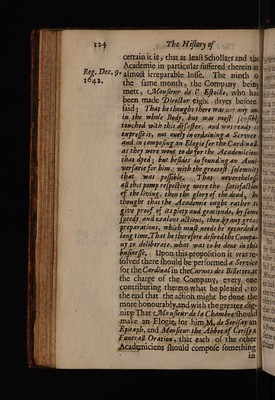 124 The History of
certain it is, that at least Schollars and the
Academie in particular suffered therein an
Reg. Dec. 9. almost irreparable losse. The ninth of
1642. the same month, the Company being
mett, Monsieur de l' Estoile, who had
been made Director eight dayes before
said; That he thought there was not any one
in the whole Body, but was most sensibly
touched with this disaster, and was ready to
expresse it, not onely in ordaining a Service
and in composing an Elogie for the Cardinall
as they were wont to do for the Academiciens
that dyed; but besides in founding an Anni-
versarie for him, with the greatest solemnity
that was possible. That neverthelesse
all this pomp respecting more the satisfaction
of the living, then the glory of the dead, he
thought that the Academie ought rather to
give proof of its piety and gratitude, by some
speedy and zealous actions, then by any great
preparations, which must needs be regarded a
long time, That he therefore desired the Compa-
ny to deliberate, what was to be done in this
businesse. Upon this proposition it was re-
solved there should be performed a Service
for the Cardinal in the Carmes des Billettes, at
the charge of the Company, every one
contributing thereto what he pleased, to
the end that the action might be done the
more honourably, and with the greater dig-
nity That Monsieur de la Chambre should
make an Elogie, for him, M. de Serisay an
Epitaph, and Monsieur the Abbot of Cerisy a
Funerall Oration, that each of the other
Academiciens should compose something
in